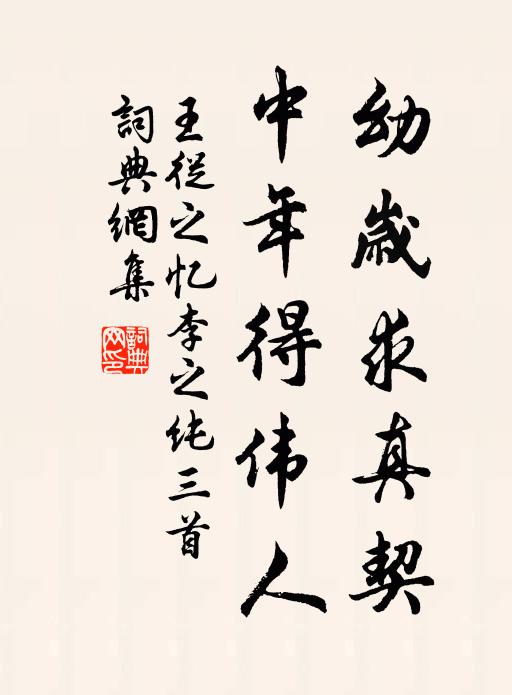 幼歲求真契
中年得伟人
王從之忆李之纯三首
詞典網集
詞典网印